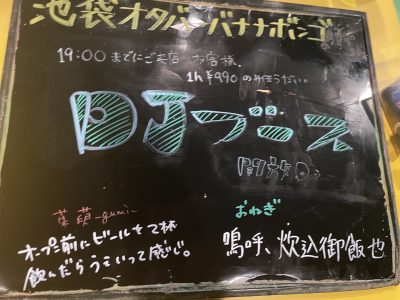 池袋オタバーバナナボンゴ
19:00 までにご来店 お客様、
1h ¥990 のみほうだい。
DJブース
開放中
菜萌-gumi-
オープン前にビールを2杯
飲んだらうぇいって感じ。
おねぎ
嗚呼、炊込御飯也